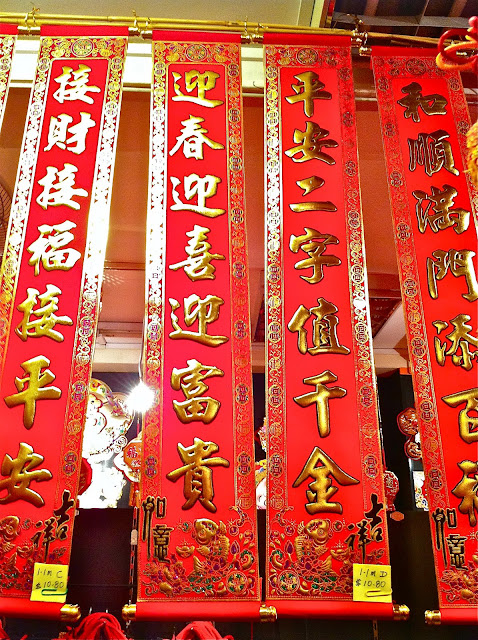 接財接福接平安
吉祥
1.1m C
$10.80
迎春迎喜迎富貴
如意
平安二字值千金
吉祥
1.1m D
$10.80
和順滿門添百福
如意